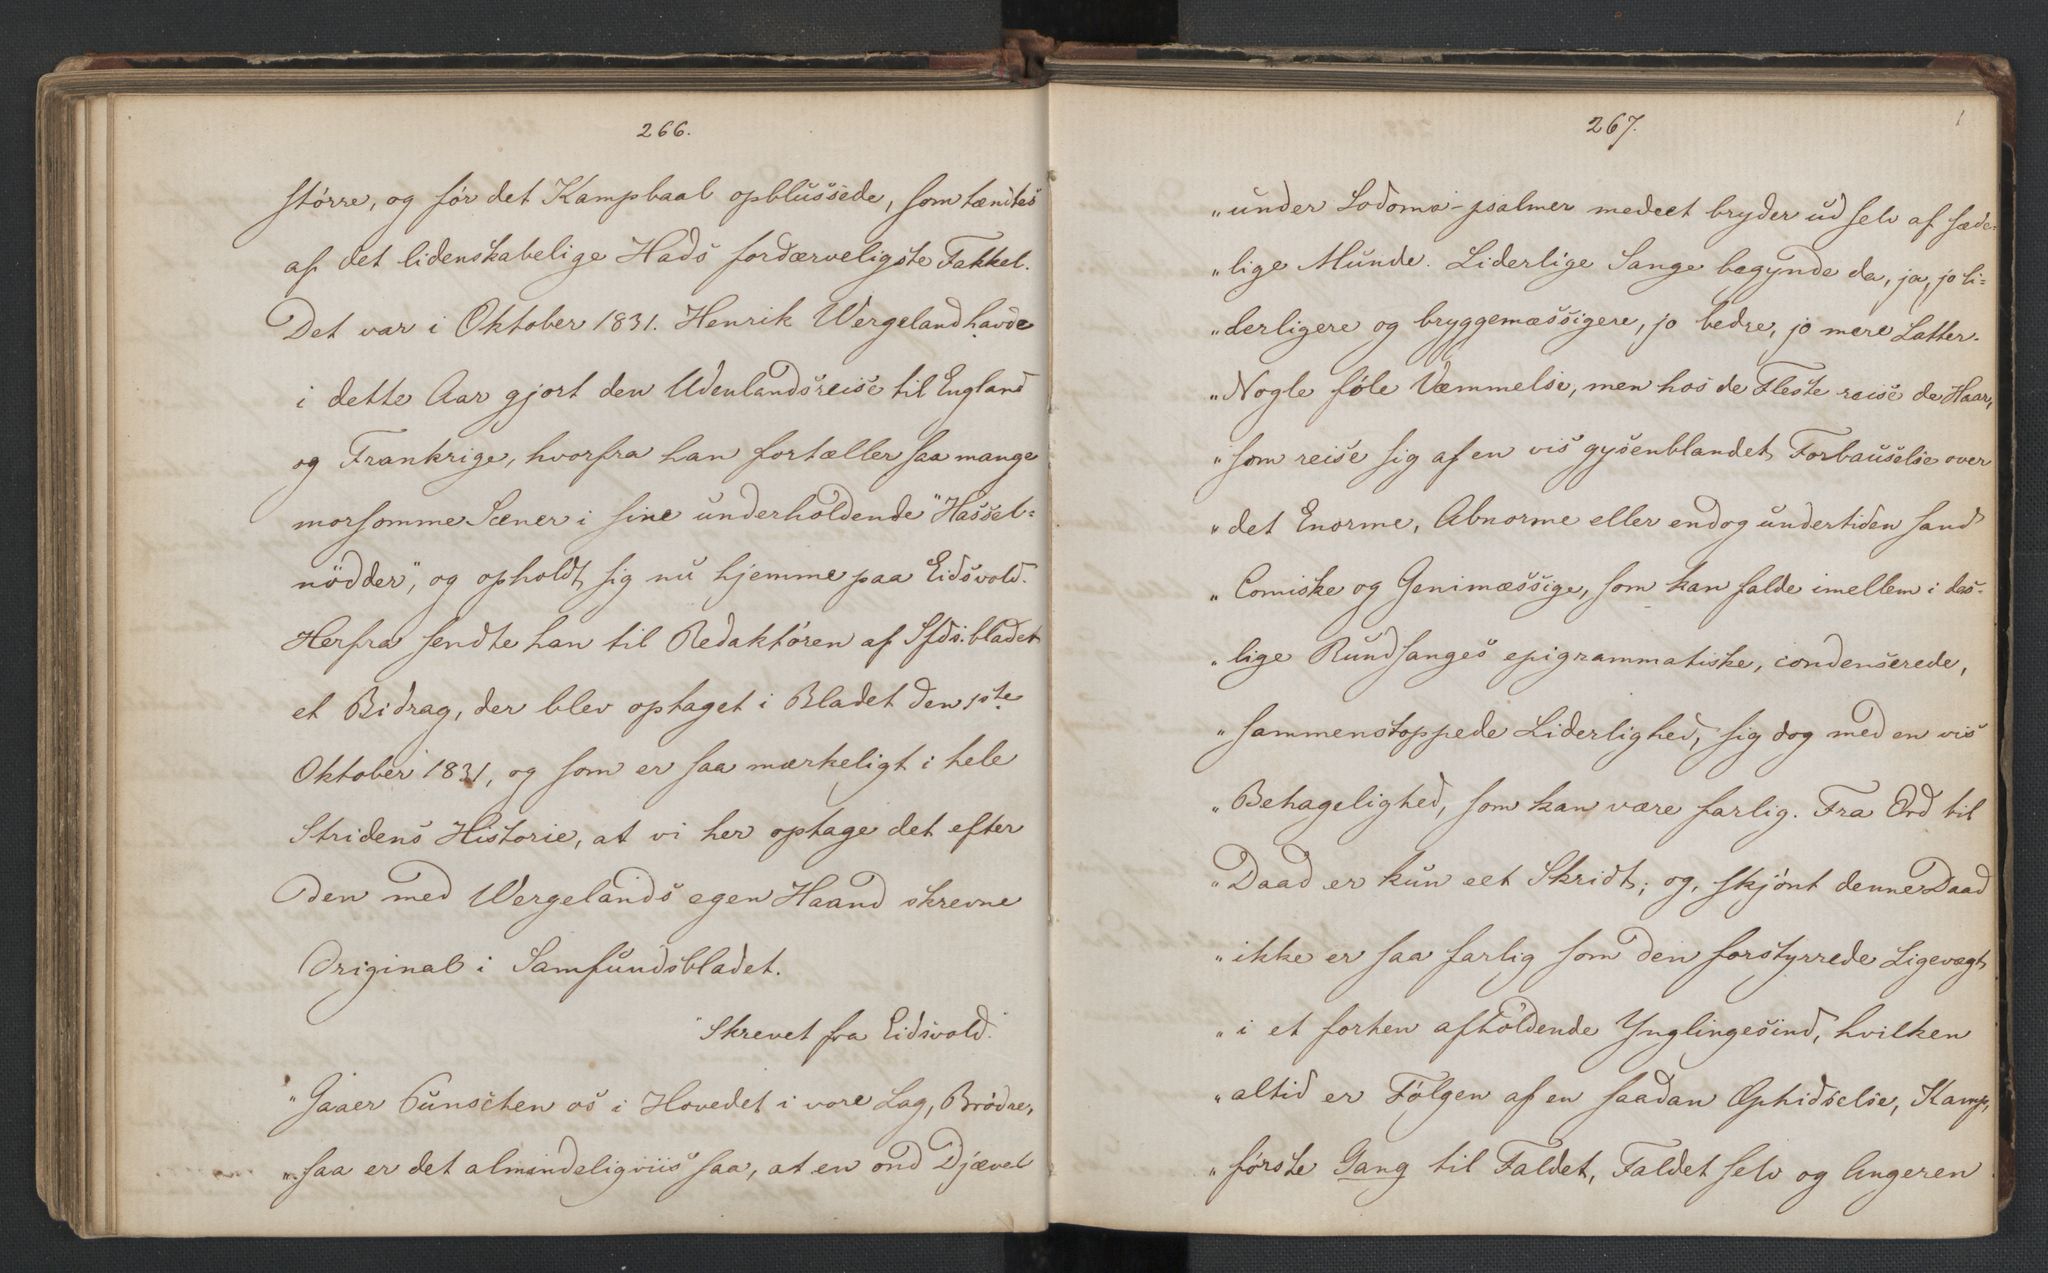 266.
større, og før det Kampbaal opblussede, som tændtes
af det lidenskabelige Hads fordærveligste Fakkel.
Det var i Oktober 1831. Henrik Wergeland havde
i dette Aar gjort den Udenlandsreise til England
og Frankrige, hvorfra han fortæller saa mange
morsomme Scener i sine underholdende "Hassel-
nødder", og opholdt sig nu hjemme paa Eidsvold.
Herfra sendte han til Redaktøren af Sfds.bladet
et Bidrag, der blev optaget i Bladet den 1ste
Oktober 1831, og som er saa mærkeligt i hele
Stridens Historie, at vi her optage det efter
den med Wergelands egen Haand skrevne
Original i Samfundsbladet.
"Skrevet fra Eidsvold."
"Gaaer Punschen os i Hovedet i vore Lag, Brødre,
"saa er det almindeligviis saa, at en ond Djævel
267.
"under Sodoma-psalmer medeet bryder ud selv af sæde-
"lige Munde. Liderlige Sange begynde da, ja, jo li-
"derligere og bryggemæssigere, jo bedre, jo mere Latter.
"Nogle føle Væmmelse, men hos de Fleste reise de Haar,
"som reise sig af en vis gysenblandet Forbauselse over
"det Enorme, Abnorme eller endog undertiden sand
"Comiske og Genimæssige, som kan falde imellem i des-
"lige Rundsanges epigrammatiske, condenserede,
"sammenstoppede Liderlighed, sig dog med en vis
"Behagelighed, som kan være farlig. Fra Ord til
"Daad er kun eet Skridt; og, skjønt denne Daad
"ikke er saa farlig som den forstyrrede Ligevægt
"i et forhen afholdende Ynglingesind, hvilken
"altid er Følgen af en saadan Ophidselse, Kamp,
"første Gang til Faldet, Faldet selv og Angeren